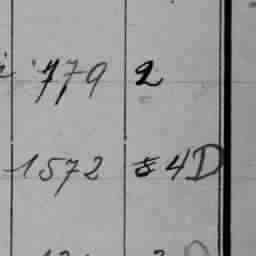 779 2
1572 54D